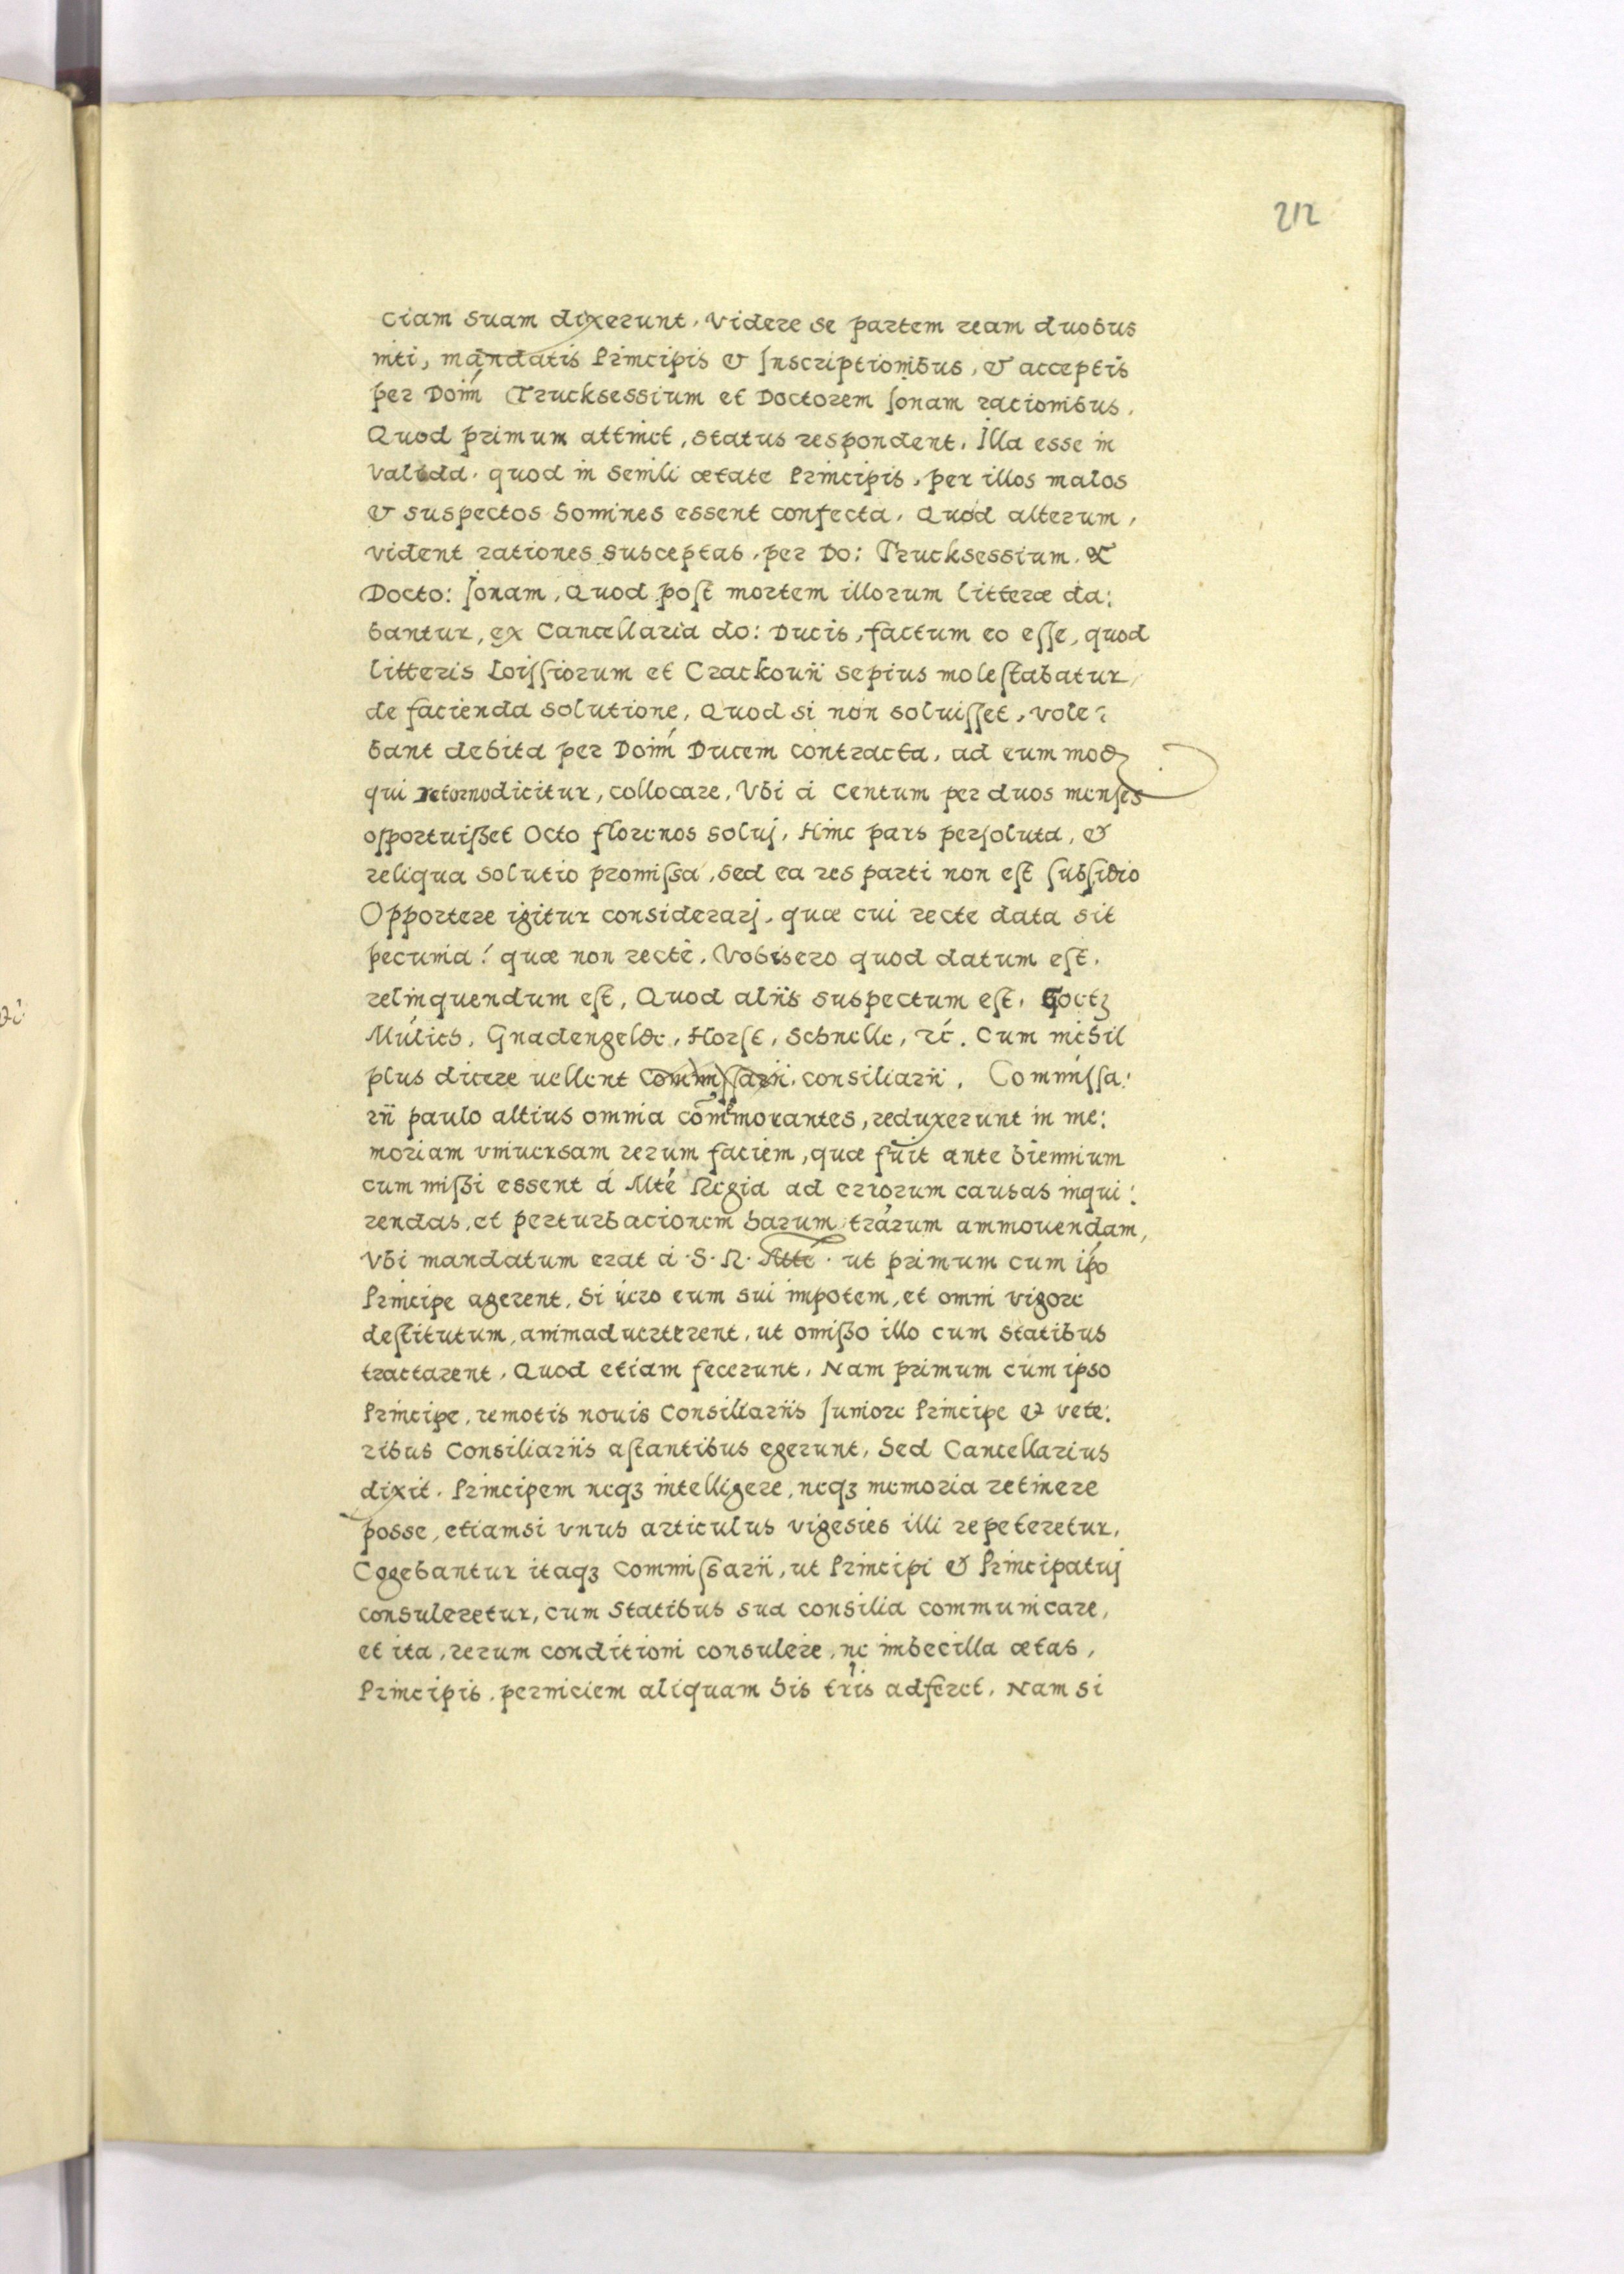 212
ciam suam dixerunt, videre se partem ream duobus
niti, mandatis Principis & Inscriptionibus, & acceptis
per Doim̄ Trucksessium et Doctorem Jonam racionibus.
Quod primum attinet, status respondent, Illa esse in
valida, quod in senili ætate Principis, per illos malos
& suspectos homines essent confecta, Quod alterum,
vident rationes susceptas, per Do: Trucksessium, &
Docto: Jonam, Quod post mortem illorum litteræ da:
bantur, ex Cancellaria do: Ducis, factum eo esse, quod
litteris Loissiorum et Crackouii sepius molestabatur,
de facienda solutione, Quod si non soluisset, vole:
bant debita per Doim̄ Ducem contracta, ad eum mod
qui retornodicitur, collocare, Vbi á Centum per duos menses
opportuisset Octo florenos soluj, Hinc pars persoluta, &
reliqua solutio promissa, sed ea res parti non est subsidio
Opportere igitur considerarj, quæ cui recte data sit
pecunia! quæ non rectè, quod datum est,
relinquendum est, Quod aliis suspectum est, Goetz
Mulich, Gnadengelde, Horst, Schnelle, rc. Cum nichil
plus dicere uellent Commissarii, consiliarii, Commissa:
rii paulo altius omnia commemorantes, reduxerunt in me:
moriam vniuersam rerum faciem, quæ fuit ante biennium
cum missi essent á Mtē Regia ad errorum causas inqui:
rendas, et perturbacionem harum trārum ammouendam,
Vbi mandatum erat á S. R. Mttē. ut primum cum ip̄o
Principe agerent, Si uero eum sui impotem, et omni vigore
destitutum, animaduerterent, ut omisso illo cum statibus
tractarent, Quod etiam fecerunt, Nam primum cum ipso
Principe, remotis nouis Consiliariis Juniore Principe & vete:
ribus Consiliariis astantibus egerunt, Sed Cancellarius
dixit, Principem neqꝫ intelligere, neqꝫ memoria retinere
posse, etiamsi vnus articulus vigesies illi repeteretur,
Cogebantur itaqꝫ Commissarii, ut Principi & Principatuj
consuleretur, cum Statibus sua consilia communicare,
et ita, rerum conditioni consulere, ne imbecilla ætas,
Principis, perniciem aliquam his tr̄is adferet, Nam si